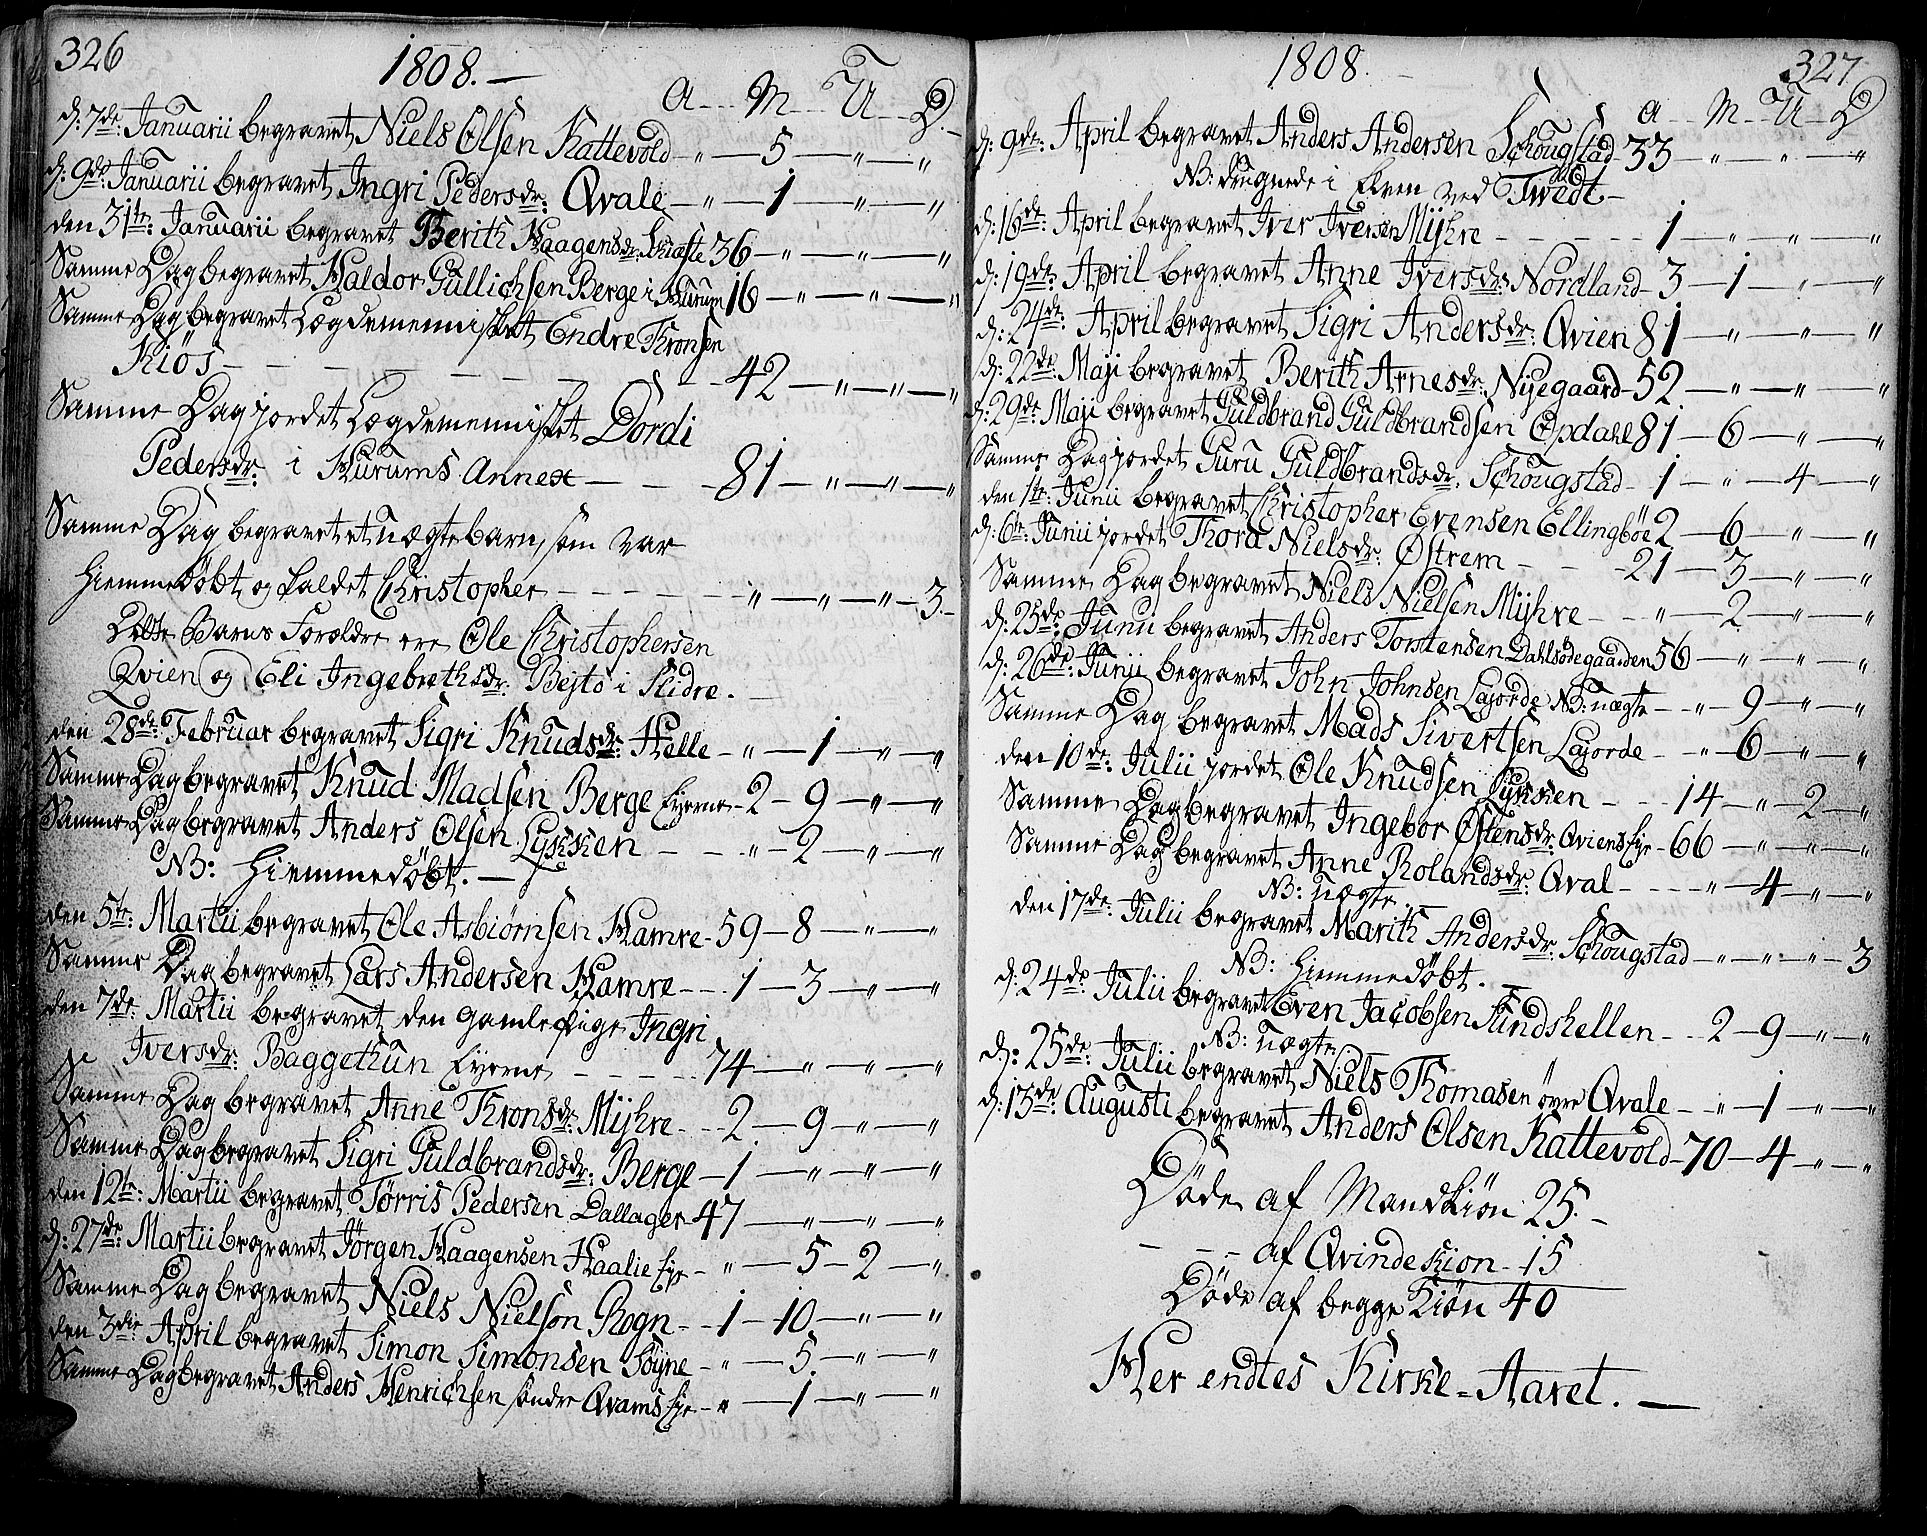 326
1808. —
A - - M - - U - - D. -
d: 7de: Januarii begravet Niels Olsen Kattevold - „ — 5 — „ — „
d: 9de: Januarii begravet Ingri Pedersdr: Qvale - „ — 1 — „ — „
den 31te: Januarii begravet Berith Haagensdr: 36 — „ — „ — „
Samme Dag begravet Haldor Gullichsen Berge i Hurum 16 — „ — „ — „
Samme Dag begravet Lægdemennisket Endre Thronsen
Kiøs - - - - - - - - 42 — „ — „ — „
Samme Dag jordet Lægdemennisket Dordi
Pedersdr: i Hurums Annex - - - 81 — „ — „ — „
Samme Dag begravet et uægte barn, som var
hiemmedøbt og kaldet Christopher - - - - - „ — „ — „ — 3. -
Dette Barns Forældre ere Ole Christophersen
Qvien og Eli Ingebrethsdr: Bejto i Slidre. -
den 28de: Februar begravet Sigri Knudsdr: Helle - „ — 1 — „ — „
Samme Dag begravet Knud Madsen Berge Eyerne - 2 — 9 — „ — „
Samme Dag begravet Anders Olsen Lykken - - - „ — 2 — „ — „
NB: hiemmedøbt. —
den 5te: Martii begravet Ole Asbiørnsen Hamre - 59 — 8 — „ — „
Samme Dag begravet Lars Andersen Hamre - - - 1 — 3 — „ — „
den 7de: Martii begravet den gamle Pige Ingri
Iversdr: Baggethun Eyerne - - - - - 74 — „ — „ — „
Samme Dag begravet Anne Thronsdr: Mijhre - - - 2 — 9 — „ — „
Samme Dag begravet Sigri Guldbrandsdr: Berge — 1 — „ — „ — „
den 12te: Martii begravet Tørris Pedersen Dallager 47 — „ — „ — „
d: 27de: Martii begravet Jørgen Haagensen Haalie Eje - „ — 5 — 2 — „
Samme Dag begravet Niels Nielsøn Rogn - - 1 — 10 — „ — „
den 3die April begravet Simon Simonsen Søyne - „ — 5. — „ — „
Samme Dag begravet Anders Henrichsen søndre Qvams Eje - „ — 1 — „ — „
1808. -
327
A - - M - - U - - D
d: 9de: April begravet Anders Andersen Schougstad 33 — „ — „ — „
NB: druknede i Elven ved Twedt. -
d: 16de: April begravet Iver Iversen Mijhre - - - - - 1 — „ — „ — „
d: 19de: April begravet Anne Iversdr: Nordland - 3 — 1 — „ — „
d: 24de: April begravet Sigri Andersdr: Qvien 81 — „ — „ — „
d: 22de: Maji begravet Berith Arnesdr: Nyegaard 52 — „ — „ — „
d: 29de: Maji begravet Guldbrand Guldbrandsen Opdahl 81 — 6 — „ — „
Samme Dag jordet Guru Guldbrandsdr: Schougstad - 1 — „ — 4 — „
den 1te: Junii begravet Christopher Evensen Ellingbøe 2 — 6 — „ — „
d: 6te: Junii jordet Thora Nielsdr: Østrem - - - 21 — 3 — „ — „
Samme Dag begravet Niels Nielsen Mijhre - - „ — 2 — „ — „
d: 25de: Junii begravet Anders Torstensen Dahlsødegaarden 56 — „ — „ — „
d: 26de: Junii begravet John Johnsen Lajorde NB: uægte - „ — 9 — „ — „
Samme Dag begravet Mads Sivertsen Lajorde - - „ — 6 — „ — „
den 10de: Julii jordet Ole Knudsen Lykken - - - 14 — „ — 2 — „
Samme Dag begravet Ingebor Østensdr: Qviens Eje - 66 — „ — „ — „
Samme Dag begravet Anne Rolandsdr: Qval - - - - „ — 4 — „ — „
NB: uægte. -
den 17de: Julii begravet Marith Andersdr: Schougstad - „ — „ — „ — 3
NB: hiemmedøbt. -
d: 24de Julii begravet Even Jacobsen Sundshellen - - 2 — 9 — „ — „
NB: uægte
d: 25de: Julii begravet Niels Thomasen øvre Qvale - - „ — 1 — „ — „
d: 13de: Augusti begravet Anders Olsen Kattevold - 70 — 4 — „ — „
Døde af Mandkiøn 25. -
- - - af Qvindekiøn - 15
Døde af begge Kiøn 40
Her endtes Kirke-Aaret. —